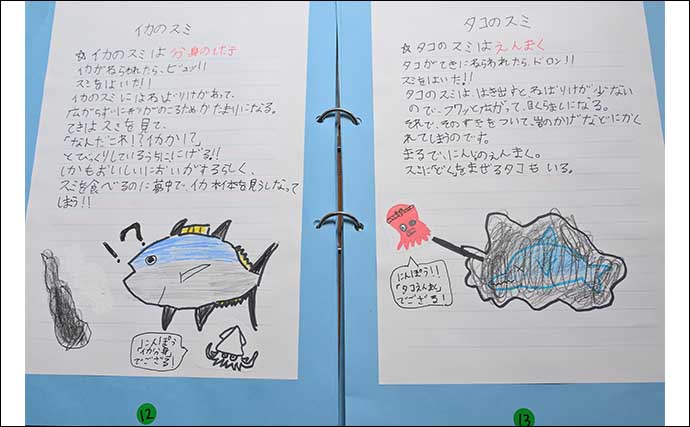 イカのスミ
☆イカのスミは分身の術
イカがねらわれたら、ピュッ!!
スミをはいた!!
イカのスミにはねばりけがあって、
広がらずにかたまりになる。
てきはスミを見て、
「なんだこれ!?イカか!?」
とびっくりしているうちににげる!!
しかもおいしいにおいがするらしく、
スミを食べるのに夢中で、イカ本体を見うしなって
しまう!!
!?
にんぽう
「イカ分身」
でござる!
12
タコのスミ
☆タコのスミはえんまく
タコがてきにねらわれたら、ドロン!!
スミをはいた!!
タコのスミは、はき出すとねばりけが少ない
ので、フワッと広がって、目くらましになる。
それで、そのすきをついて、岩のかげなどにかく
れてしまうのです。
まるで、にんじゃのえんまく。
スミにどくをまぜるタコもいる。
にんぽう!!
「タコえんまく」
でござる!
13